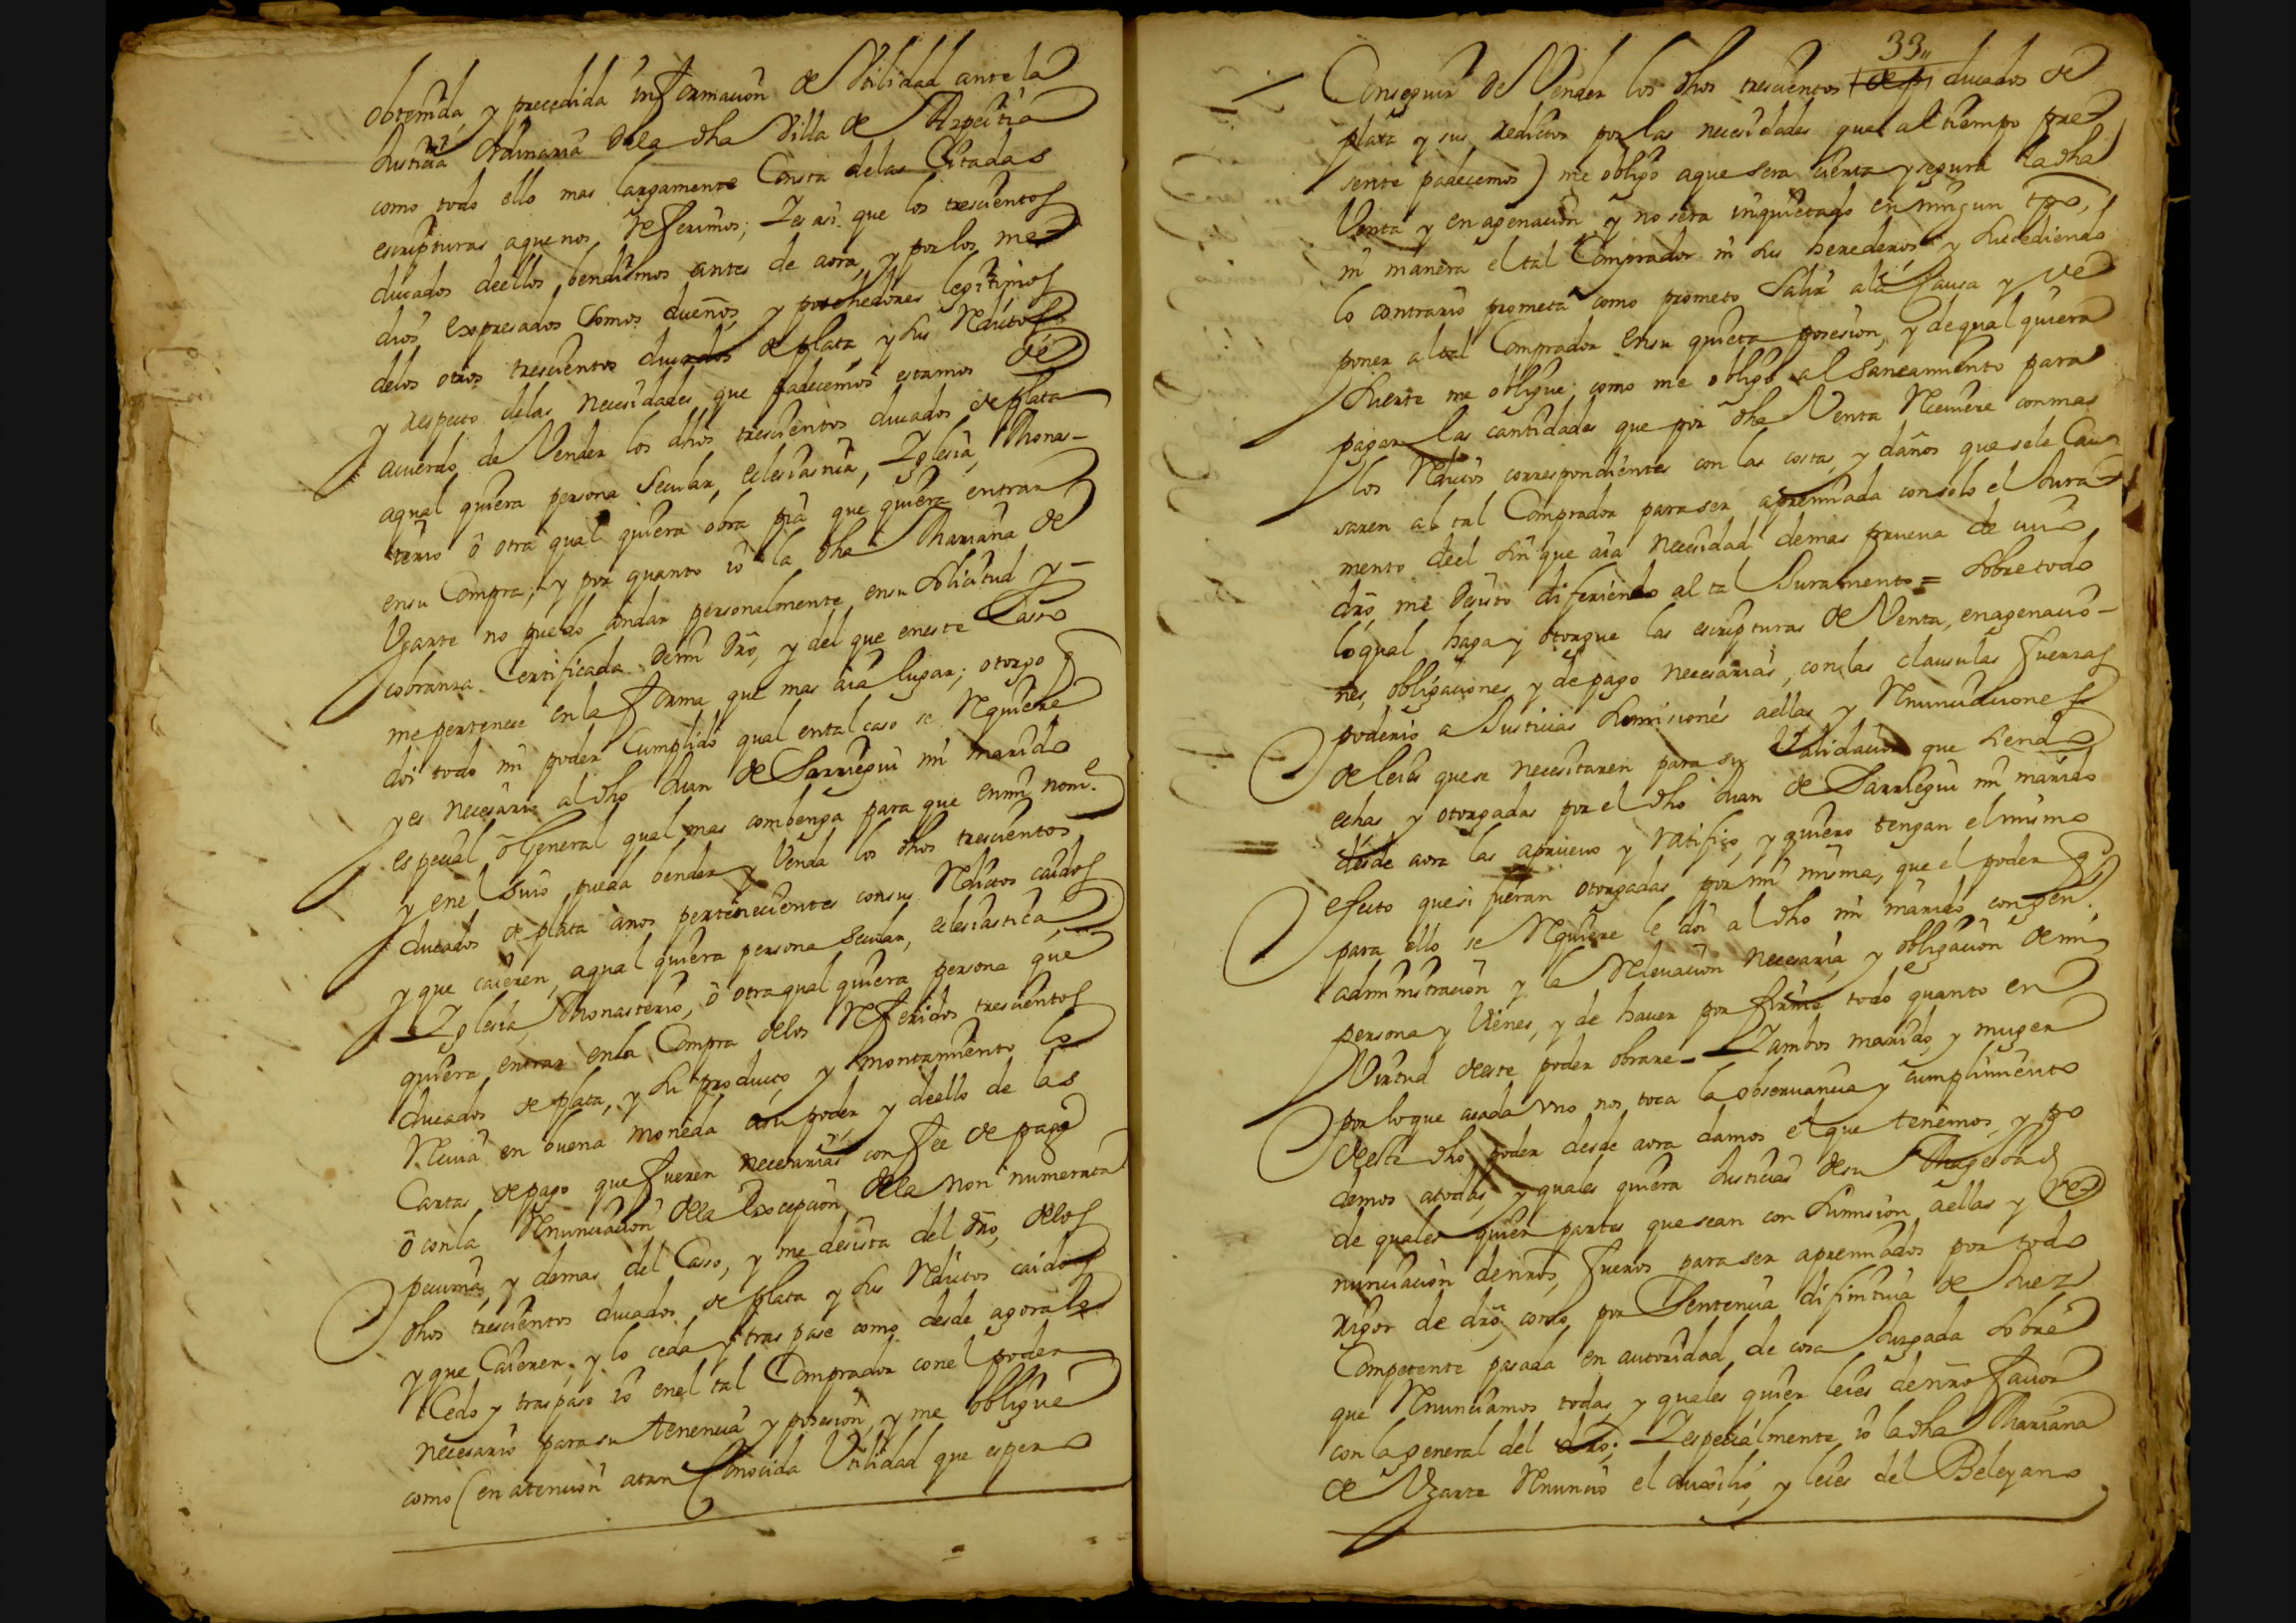 obtenida, y precedida informacion de Vtilidad ante la
Justicia Ordinaria dela dha Villa de Azpeitia
como todo ello mas largamente Consta delas Citadas
escripturas aque nos referimos; Y es asi que los trescientos
ducados deellos bendimos antes de aora, y por los me-
dios expresados somos dueños, y posehedores legitimos
delos otros trescientos ducados de plata, y sus Reditos
y respecto delas necesidades que padecemos estamos de
acuerdo de Vender los dhos trescientos ducados de plata
aqual quiera persona Secular, eclesiastica, Yglesia, Monas-
terio ô otra qual quiera obra pia que quiera entrar
ensu Compra; y por quanto io la dha Mariana de
Vgarte no puedo andar personalmente ensu solicitud y-
cobranza Certificada demi dro, y del que eneste Casso
me pertenece enla forma que mas aia lugar; otorgo q
doi todo mi poder Cumplido qual ental caso se Requiere
y es necesario al dho Juan de Sarriegui mi marido
especial ô General qual mas combenga para que enmi nome
y enel suio pueda bender y Venda los dhos trescientos
ducados de plata anos pertenecientes consus Reditos caidos
y que caieren, aqual quiera persona secular, eclesiastica,
Yglesia, Monasterio, ô otra qual quiera persona que
quiera entrar enla Compra delos Referidos trescientos
ducados de plata, y su producto, y montamiento lo
Reciva en buena moneda asu poder y deello de las
Cartas de pago que fueren necesarias con fee de paga
ô conla Renunciacion dela Excepcion dela non numerata
pecunia, y demas del Casso, y me desista del dro, delos
dhos trescientos ducados de plata y sus Reditos caidos
y que Caieren, y lo ceda y traspase como desde agora lo
Cedo y traspaso io enel tal Comprador conel poder
necesario parasu tenencia y posesion, y me obligue
como (en atencion atan Conocida Vtilidad que espero
33
Conseguir de Vender los dhos trescientos ducados de
plata y sus Reditos por las necesidades que al tiempo pre
sente padecemos) me obligo aque sera cierta y segura la dha
Venta y enagenacion y no sera inquietado en ningun tpo,
ni manera el tal Comprador ni sus herederos y sucediendo
lo contrario prometa como prometo Salir ala Causa y de
poner al tal Comprador ensu quieta posesion, y de qual quiera
suerte me obligue como me obligo al Saneamiento para
pagar las cantidades que por dha Venta Reciviere con mas
los Reditos correspondientes con las costas, y daños que sele Cau-
saren al tal Comprador para ser apremiada con solo el Jura-
mento deel sin que aia necesidad demas prueva de cuio
dro, me desisto difiriendo al tal Juramento = Sobre todo
lo qual haga y otorgue las escripturas de Venta, enagenacio-
nes, obligaciones y de pago necesarias, con las clausulas fuerzas
poderio a Justicias sumisiones aellas y Renunciaciones
de leies que se necesitaren para su Validacion que siendo
echas y otorgadas por el dho Juan de Sarriegui mi marido
desde aora las apruevo y ratifico, y quiero tengan el mismo
efecto que si fueran otorgadas por mi misma, que el poder q
para ello se Requiere le doi al dho mi marido con gen.
administracion y la Relevacion necesaria y obligacion de mi
persona y Vienes, y de haver por firme todo quanto en
Virtud deeste poder obrare = Y ambos marido y muger
por loque acada vno nos toca la observancia y cumplimiento
deeste dho poder desde aora damos el que tenemos, y po
demos atodas, y quales quiera Justicias desu Magestad
de quales quier partes que sean con sumision aellas y re-
nunciacion denros, fueros para ser apremiados por todo
rigor de dro, como, por Sentencia difinitiva de Juez
Competente pasada en autoridad de cosa Juzgada sobre
que Renunciamos todas, y quales quier leies denro favor
con la general del dro; Y especialmente io la dha Mariana
de Vgarte Renuncio el Auxilio, y leies del Beleyano